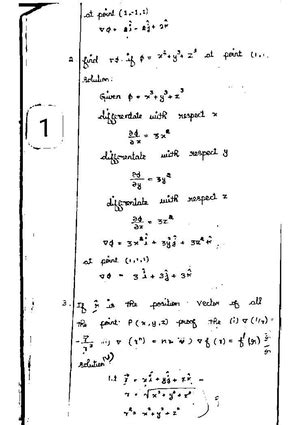 at point (1,-1,1)
∇φ = 2î - 2ĵ + 2k̂
2. find ∇φ if φ = x³+y³+z³ at point (1,1,
solution:
Given φ = x³+y³+z³
differentate with respect x
∂φ/∂x = 3x²
differentate with respect y
∂φ/∂y = 3y²
1
differentate with respect z
∂φ/∂x = 3z²
∇φ = 3x²î + 3y²ĵ + 3z²k̂
at point (1,1,1)
∇φ = 3î + 3ĵ + 3k̂
3. If r̂ is the position vector of all
the point P(x,y,z) proof the (i) ∇(1/r) =
∇(rⁿ) = ∇f(r) = f'(r)
solution
r = √x²+y²+z²
r² = x²+y²+z²